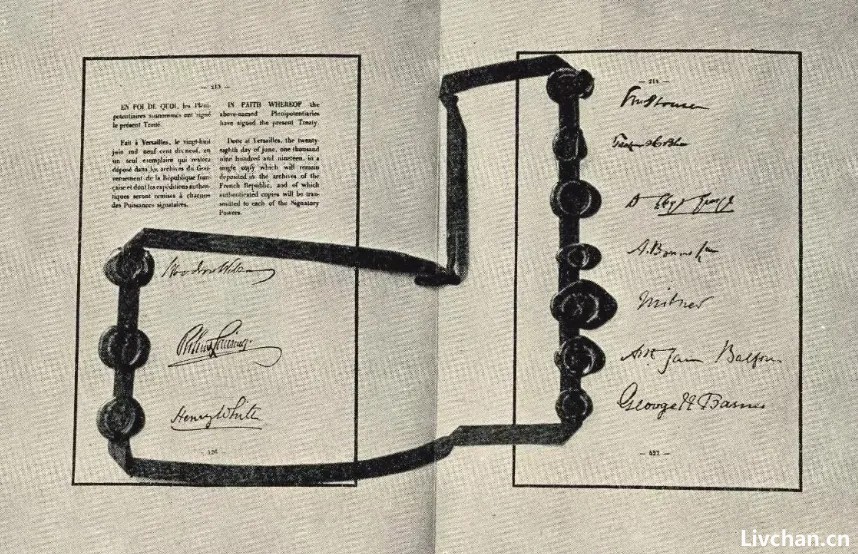 — 213 —
EN FOI DE QUOI, les Pléni-
potentiaires susnommés ont signé
le présent Traité.
Fait à Versailles, le vingt-huit
juin mil neuf cent dix-neuf, en
un seul exemplaire qui restera
déposé dans les archives du Gou-
vernement de la République fran-
çaise et dont les expéditions authen-
tiques seront remises à chacune
des Puissances signataires.
IN FAITH WHEREOF the
above-named Plenipotentiaries
have signed the present Treaty.
Done at Versailles, the twenty-
eighth day of June, one thousand
nine hundred and nineteen, in a
single copy which will remain
deposited in the archives of the
French Republic, and of which
authenticated copies will be trans-
mitted to each of the Signatory
Powers.
Woodrow Wilson
Robert Lansing
Henry White
— 214 —
D Lloyd George
A. Bonar Law
Milner
Balfour
George N Barnes
Livchan.cn